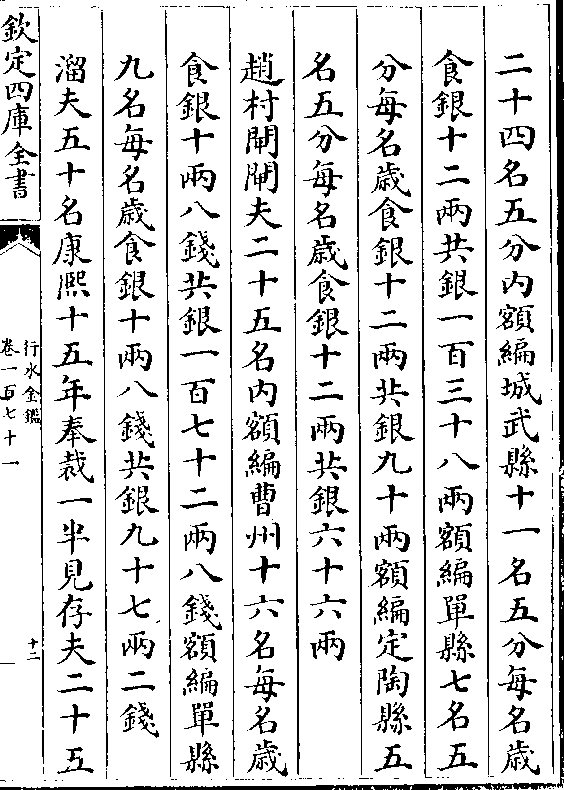 二十四名五分内額編城武縣十一名五分每名歳
食銀十二兩共銀一百三十八兩額編單縣七名五
分每名歳食銀十二兩共銀九十兩額編定陶縣五
名五分每名歳食銀十二兩共銀六十六兩
趙村閘閘夫二十五名内額編曹州十六名每名歳
食銀十兩八錢共銀一百七十二兩八錢額編單縣
九名每名歳食銀十兩八錢共銀九十七兩二錢
溜夫五十名康熙十五年奉裁一半見存夫二十五
欽定四庫全書
行水金鑑
卷一百七十一
十二